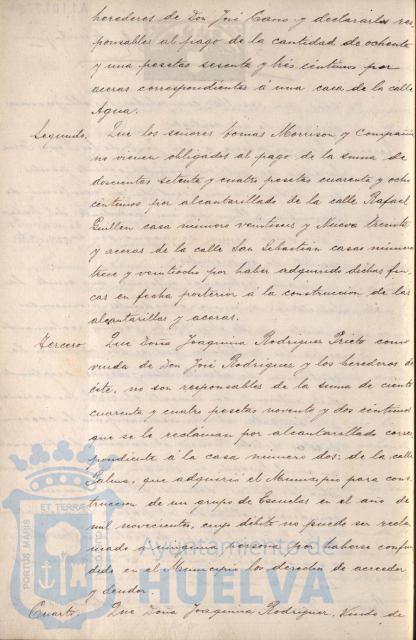 herederos de Don José Cano y declararlos res-
ponsables al pago de la cantidad de ochenta
y una pesetas sesenta y tres céntimos por
aceras correspondientes á una casa de la calle
Agua.
Segundo. Que los señores Tomas Morrison y Compañia
no vienen obligados al pago de la suma de
doscientas setenta y cuatro pesetas cuarenta y ocho
céntimos por alcantarillado de la calle Rafael
Guillen casa número veintiseis y Nueva treinta
y aceras de la calle San Sebastián casas número
trece y veintiocho por haber adquirido dichas fin-
cas en fecha posterior á la construccion de las
alcantarillas y aceras.
Tercero. Que Doña Joaquina Rodriguez Prieto como
viuda de Don José Rodriguez y los herederos de
éste, no son responsables de la suma de ciento
cuarenta y cuatro pesetas noventa y dos céntimos
que se le reclaman por alcantarillado corres-
pondiente á la casa número dos, de la calle
que adquirió el Municipio para cons-
truccion de un grupo de Escuelas en el año de
mil novecientos, cuyo débito no puede ser recla-
mado á ninguna persona por haberse confun-
dido en el Municipio los derechos de acreedor
y deudor.
Cuarto. Que Doña Joaquina Rodriguez, Viuda de
PORTUS MARIS ET TERRAE
Ayuntamiento de
HUELVA